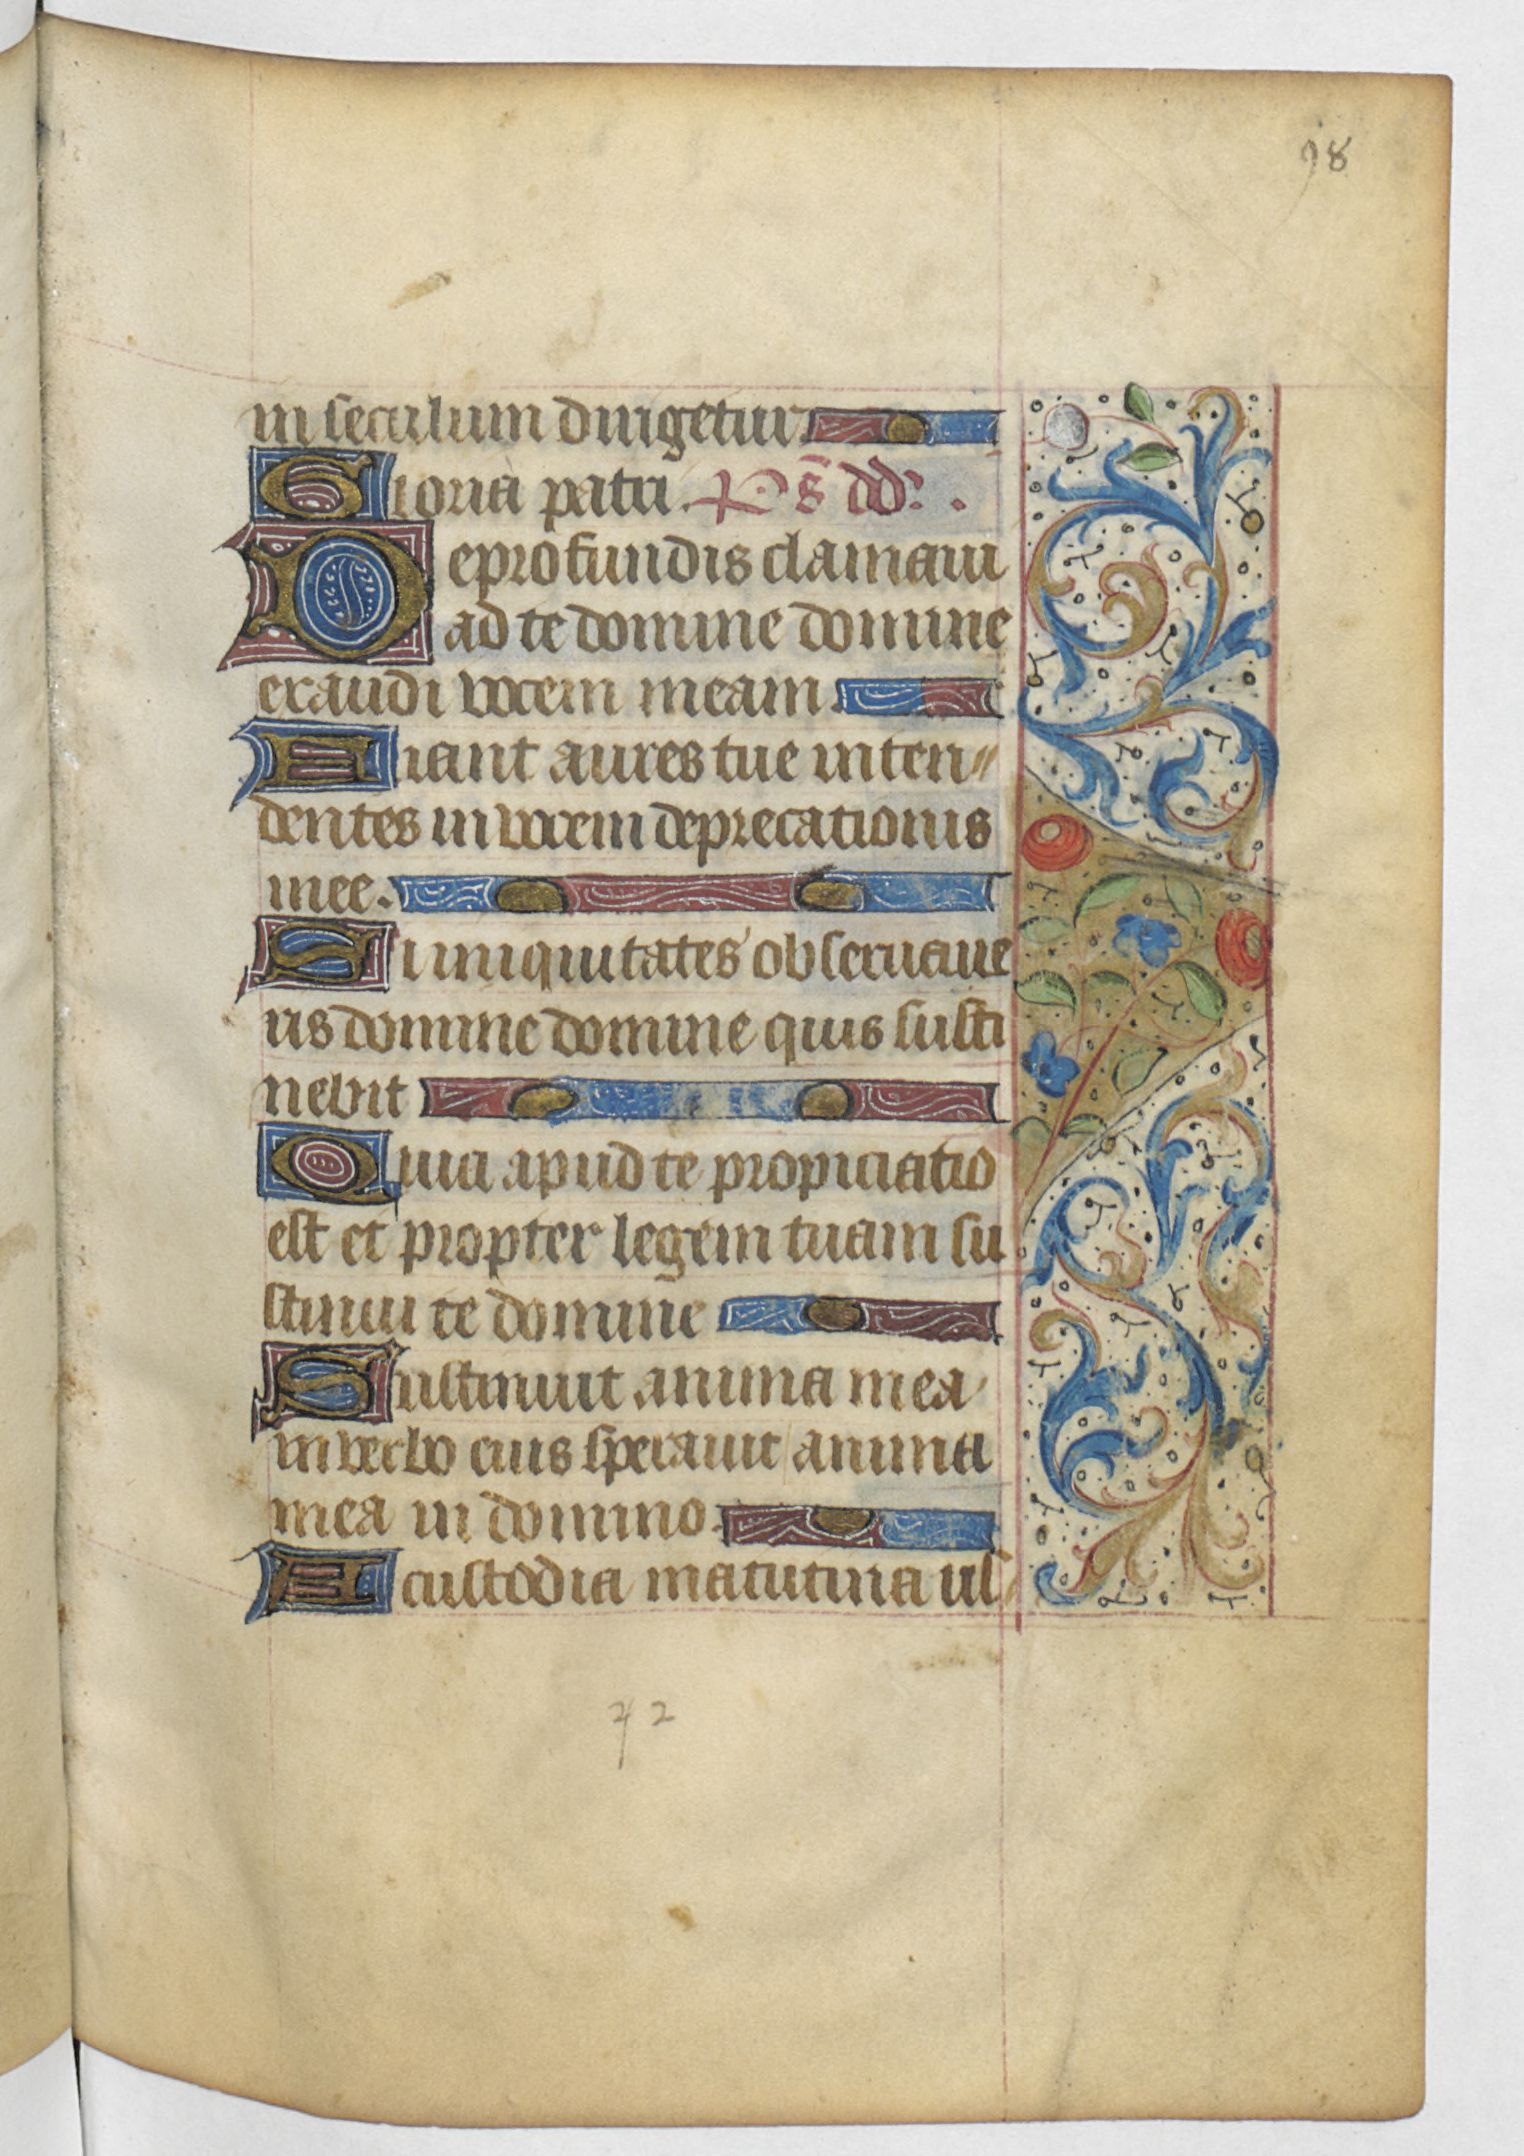 98
in seculum dirigetur.
Gloria patri. Ps dd.
De profundis clamaui
ad te domine domine
exaudi vocem meam.
Fiant aures tue inten
dentes in vocem deprecationis
mee.
Si iniquitates obseruaue
ris domine domine quis susti
nebit
Quia apud te propiciatio
est et propter legem tuam su
stinui te domine
Sustinuit anima mea
in verbo eius sperauit anima
mea in domino.
A custodia matutina us
72